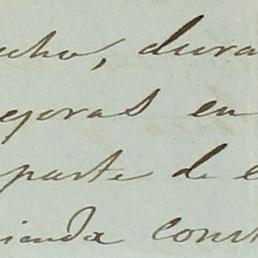 cho, dura
ejoras en
parte de e
ienda const